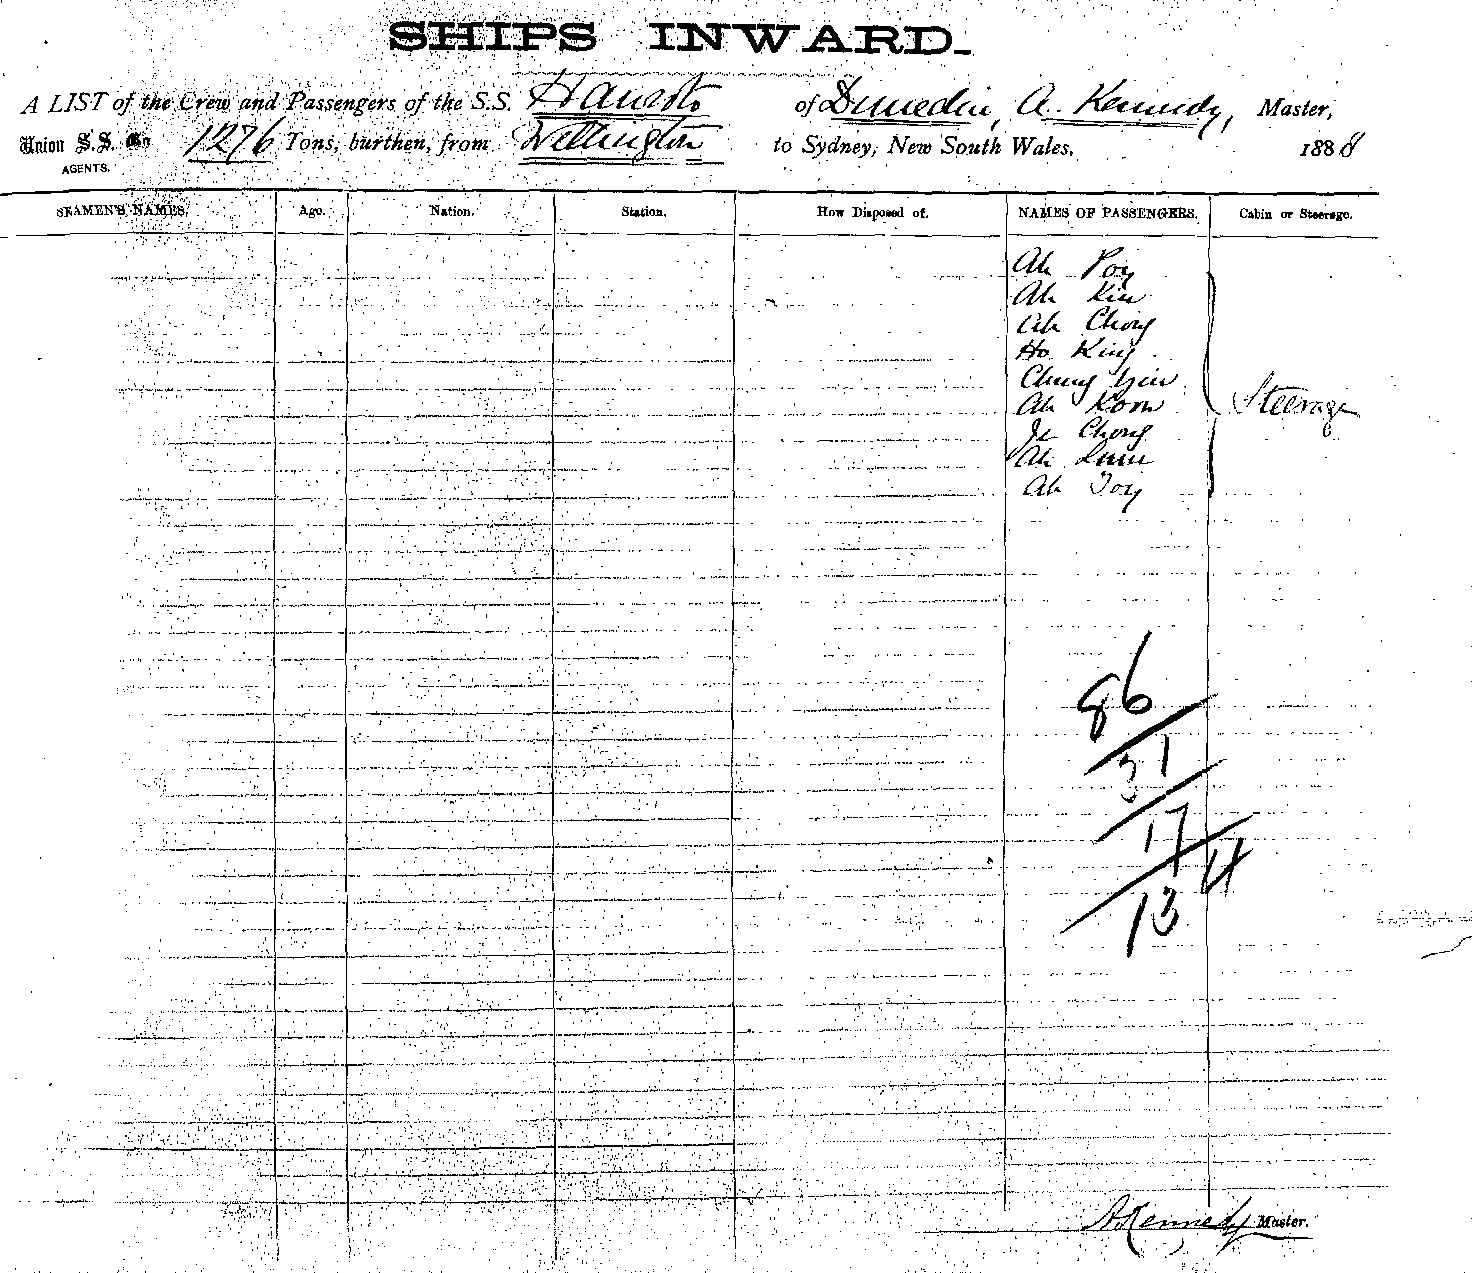 SHIPS INWARD.
A LIST of the Crew and Passengers of the S.S. Hauroto of Dunedin, A. Kennedy, Master,
Union S.S. Co 1276 Tons, burthen, from Wellington to Sydney, New South Wales. 1888
AGENTS.
SEAMEN'S NAMES. Age. Nation. Station. How Disposed of. NAMES OF PASSENGERS. Cabin or Steerage.
Ah Poy
Ah Kin
Ah Chong
Ho King
Chung
Ah Koon
Chong
Ah
Ah Toy
Steerage
86
31
17
4
13
A Kennedy Master.